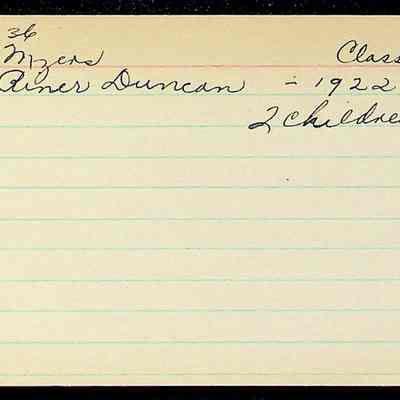 36
Myers Class
Riner Duncan - 1922
2 childre